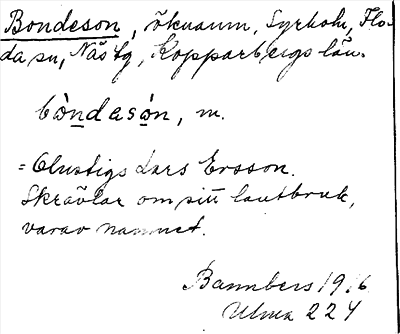 Bondeson, öknamn, Syrholn, Flo-
da sn, Näs tg, Kopparbergs län.
bòndasòn, m.
= Olustigs Lars Ersson.
Skrävlar om sitt lantbruk,
varav namnet.
Bannbers 1916
Ulma 224